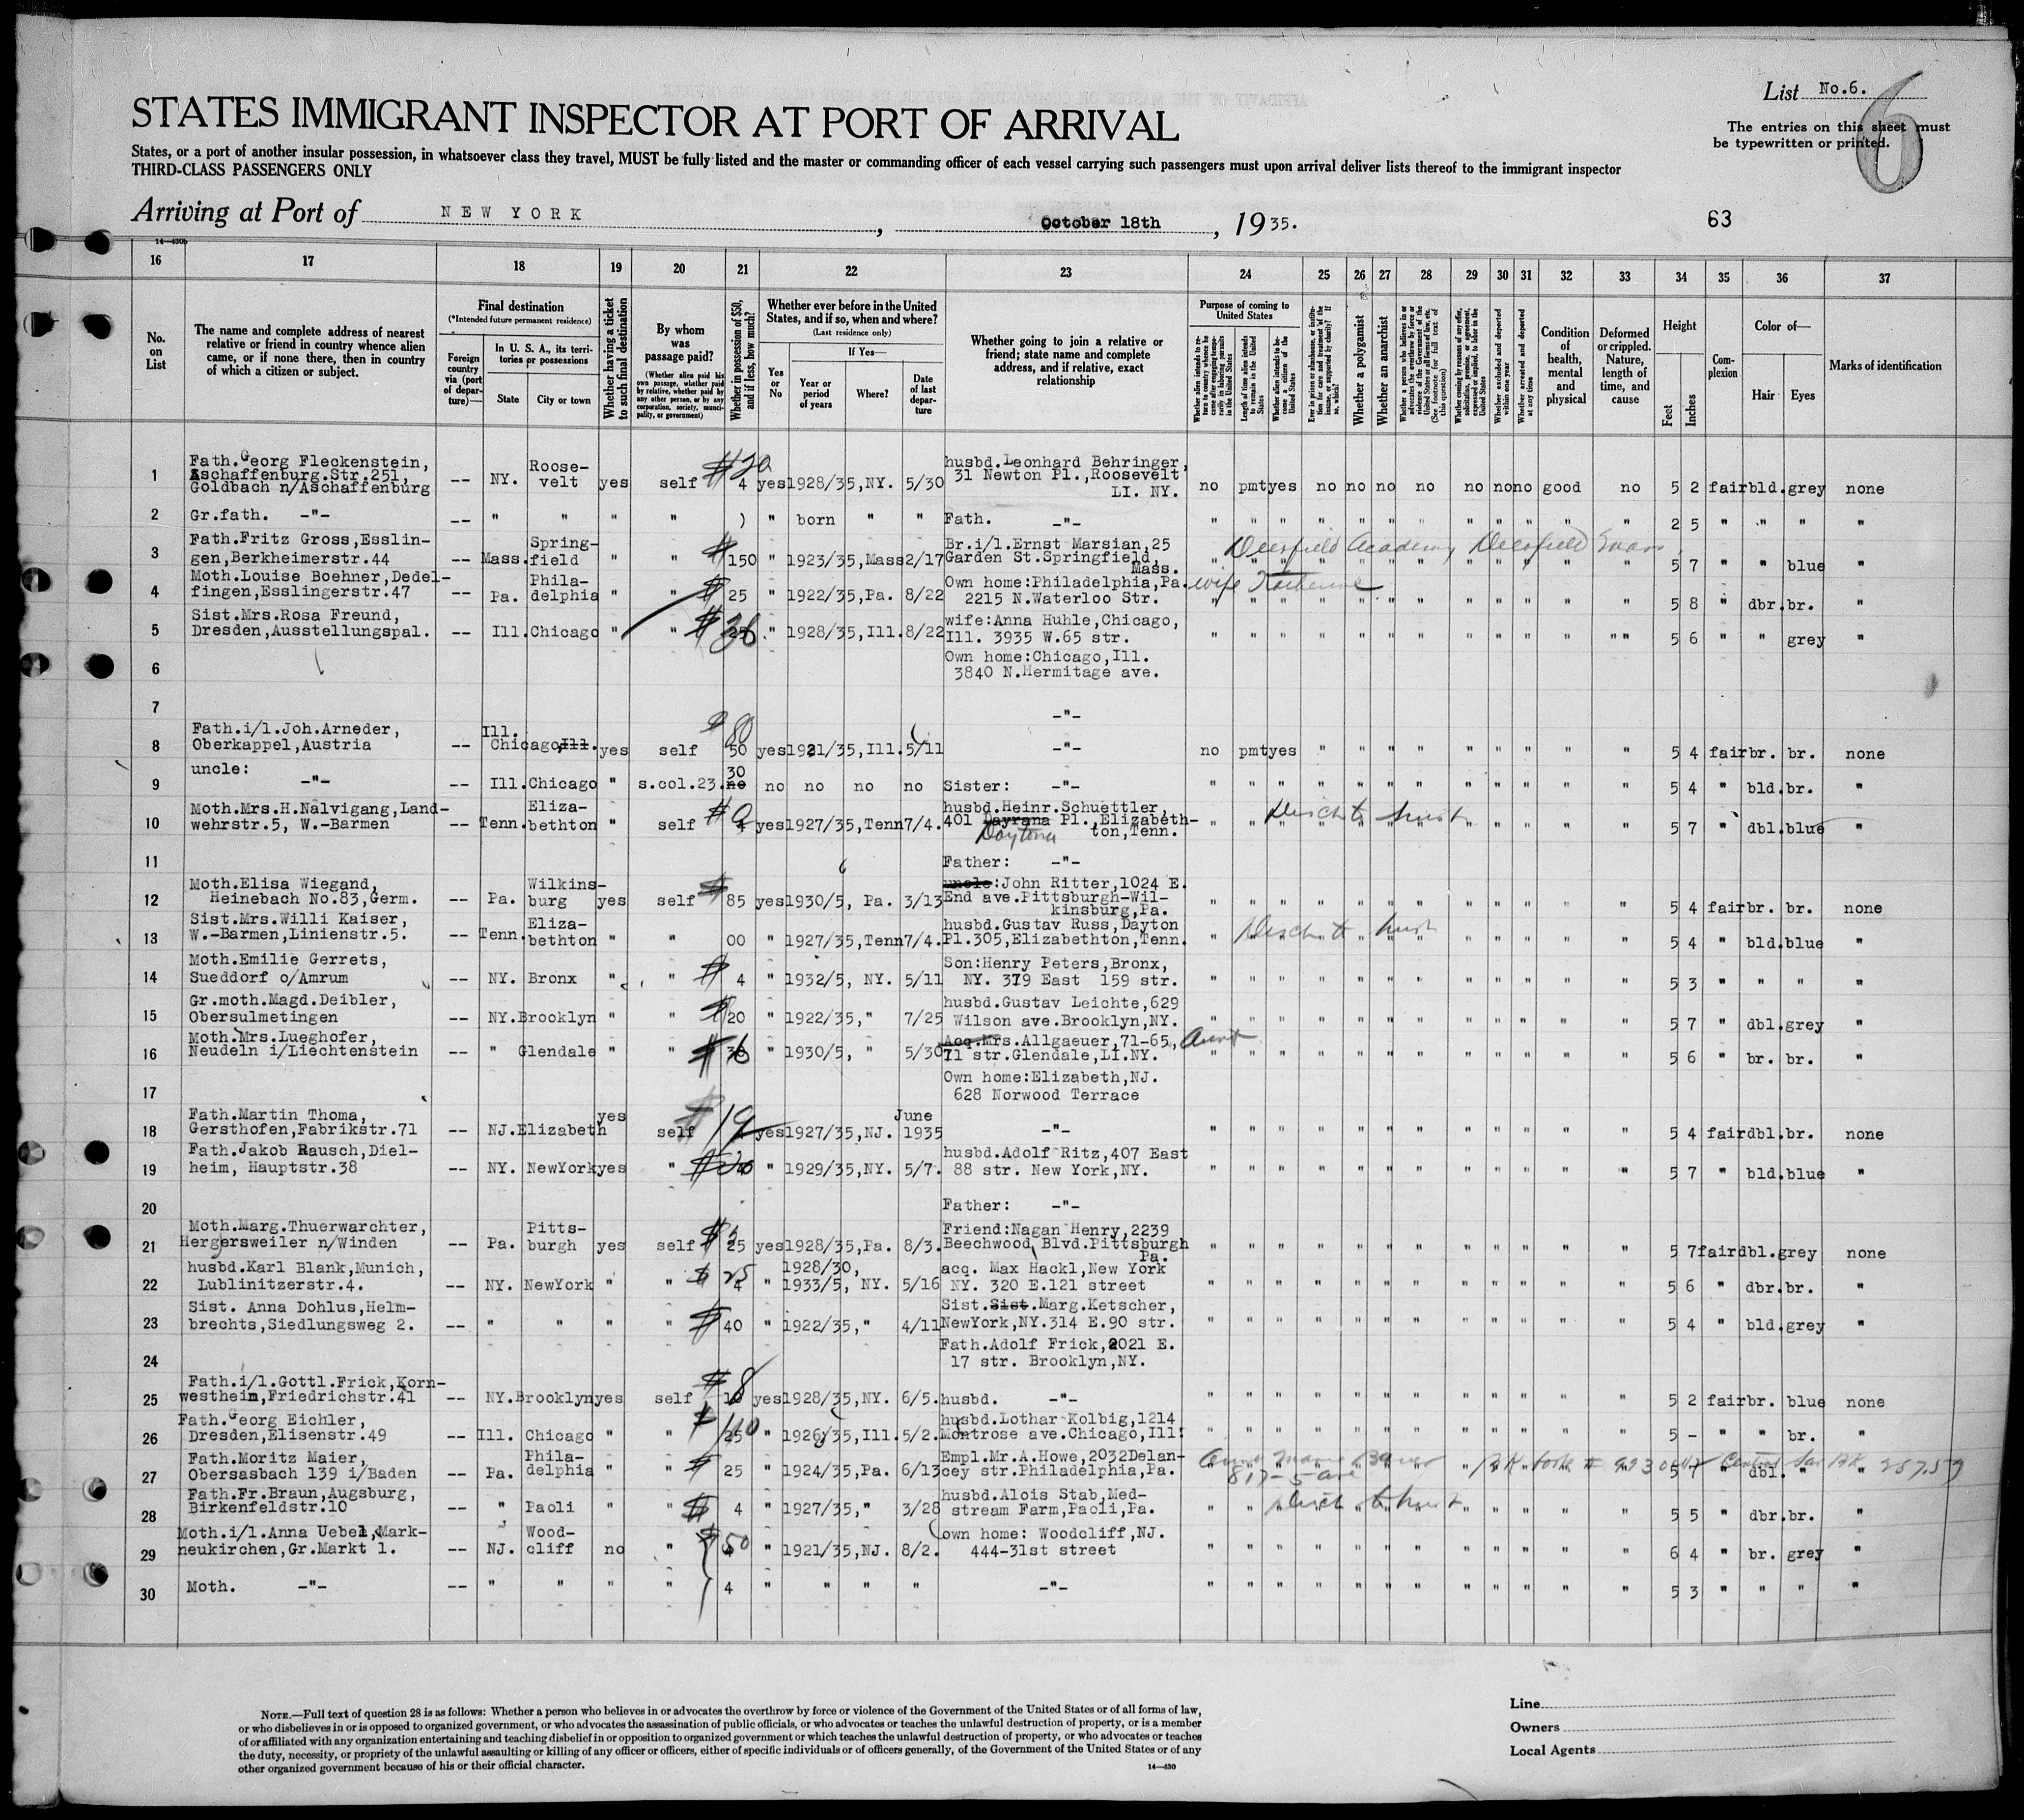 List No.6.
6
STATES IMMIGRANT INSPECTOR AT PORT OF ARRIVAL
The entries on this sheet must
be typewritten or printed.
States, or a port of another insular possession, in whatsoever class they travel, MUST be fully listed and the master or commanding officer of each vessel carrying such passengers must upon arrival deliver lists thereof to the immigrant inspector
THIRD-CLASS PASSENGERS ONLY
Arriving at Port of NEW YORK, October 18th, 1935.
63
14—430b
16 17 18 19 20 21 22 23 24 25 26 27 28 29 30 31 32 33 34 35 36 37
No. on List
The name and complete address of nearest relative or friend in country whence alien came, or if none there, then in country of which a citizen or subject.
Final destination
(*Intended future permanent residence)
Foreign country via (port of departure)—
In U. S. A., its territories or possessions
State
City or town
Whether having a ticket to such final destination
By whom was passage paid?
(Whether alien paid his own passage, whether paid by relative, whether paid by any other person, or by any corporation, society, municipality, or government)
Whether in possession of $50, and if less, how much?
Whether ever before in the United States, and if so, when and where?
(Last residence only)
Yes or No
If Yes—
Year or period of years
Where?
Date of last departure
Whether going to join a relative or friend; state name and complete address, and if relative, exact relationship
Purpose of coming to United States
Length of time alien intends to remain in the United States
Whether alien intends to become a citizen of the United States
Whether a polygamist
Whether an anarchist
Whether excluded and deported within one year
Whether arrested and deported at any time
Condition of health, mental and physical
Deformed or crippled. Nature, length of time, and cause
Height
Feet
Inches
Complexion
Color of—
Hair
Eyes
Marks of identification
1 Fath.Georg Fleckenstein, Aschaffenburg.Str.251, Goldbach n/Aschaffenburg -- NY. Roosevelt yes self $20 4 yes 1928/35,NY. 5/30 husbd.Leonhard Behringer, 31 Newton Pl.,Roosevelt LI. NY. no pmt yes no no no no no no no good no 5 2 fair bld. grey none
2 Gr.fath. -"- -- " " " " ) " born " " Fath. -"- " " " " " " " " " " " " 2 5 " " " "
3 Fath.Fritz Gross,Esslingen,Berkheimerstr.44 -- Mass. Springfield " " $ 150 " 1923/35,Mass 2/17 Br.i/l.Ernst Marsian,25 Garden St.Springfield, Mass. Deerfield Academy Deerfield 5 7 " " blue "
4 Moth.Louise Boehner,Dedelfingen,Esslingerstr.47 -- Pa. Philadelphia " " $ 25 " 1922/35,Pa. 8/22 Own home:Philadelphia,Pa. 2215 N.Waterloo Str. wife Katherine 5 8 " dbr. br. "
5 Sist.Mrs.Rosa Freund, Dresden,Ausstellungspal. -- Ill. Chicago " " $ " 1928/35,Ill. 8/22 wife:Anna Huhle,Chicago, Ill. 3935 W.65 str. 5 6 " " grey "
6 Own home:Chicago,Ill. 3840 N.Hermitage ave.
7 -"-
8 Fath.i/l.Joh.Arneder, Oberkappel,Austria -- Ill. Chicago,Ill. yes self 80 50 yes 1921/35,Ill. 5/11 -"- no pmt yes " " " " " " " " " 5 4 fair br. br. none
9 uncle: -"- -- Ill. Chicago " s.col.23. 30 no no no no no Sister: -"- 5 4 " bld. br. "
10 Moth.Mrs.H.Nalvigang,Landwehrstr.5, W.-Barmen -- Tenn. Elizabethton " self $0 4 yes 1927/35,Tenn 7/4. husbd.Heinr.Schuettler, 401 Dayrana Pl.,Elizabethton,Tenn. Daytona 5 7 " dbl. blue "
11 Father: -"-
12 Moth.Elisa Wiegand, Heinebach No.83,Germ. -- Pa. Wilkinsburg yes self $ 85 yes 1930/5, Pa. 3/13 uncle:John Ritter,1024 E. End ave.Pittsburgh-Wilkinsburg,Pa. 5 4 fair br. br. none
13 Sist.Mrs.Willi Kaiser, W.-Barmen,Linienstr.5. -- Tenn. Elizabethton " " 00 " 1927/35,Tenn 7/4. husbd.Gustav Russ,Dayton Pl.305,Elizabethton,Tenn. 5 4 " bld. blue "
14 Moth.Emilie Gerrets, Sueddorf o/Amrum -- NY. Bronx " " $ 4 " 1932/5, NY. 5/11 Son:Henry Peters,Bronx, NY. 379 East 159 str. 5 3 " " " "
15 Gr.moth.Magd.Deibler, Obersulmetingen -- NY. Brooklyn " " $ 20 " 1922/35," 7/25 husbd.Gustav Leichte,629 Wilson ave.Brooklyn,NY. 5 7 " dbl. grey "
16 Moth.Mrs.Lueghofer, Neudeln i/Liechtenstein -- " Glendale " " $ " 1930/5, " 5/30 Acq.Mrs.Allgaeuer,71-65, 71 str.Glendale,LI.NY. Aunt 5 6 " br. br. "
17 Own home:Elizabeth,NJ. 628 Norwood Terrace
18 Fath.Martin Thoma, Gersthofen,Fabrikstr.71 -- NJ. Elizabeth yes self $ yes 1927/35,NJ. June 1935 -"- 5 4 fair dbl. br. none
19 Fath.Jakob Rausch,Dielheim, Hauptstr.38 -- NY. NewYork yes " $ " 1929/35,NY. 5/7. husbd.Adolf Ritz,407 East 88 str. New York,NY. 5 7 " bld. blue "
20 Father: -"-
21 Moth.Marg.Thuerwarchter, Hergersweiler n/Winden -- Pa. Pittsburgh yes self $ 25 yes 1928/35,Pa. 8/3. Friend:Nagan Henry,2239 Beechwood Blvd.Pittsburgh Pa. 5 7 fair dbl. grey none
22 husbd.Karl Blank,Munich, Lublinitzerstr.4. -- NY. NewYork " " $ 25 4 " 1928/30, 1933/5, NY. 5/16 acq. Max Hackl,New York NY. 320 E.121 street 5 6 " dbr. br. "
23 Sist. Anna Dohlus,Helmbrechts,Siedlungsweg 2. -- " " " " $ 40 " 1922/35," 4/11 Sist.Sist.Marg.Ketscher, NewYork,NY.314 E.90 str. 5 4 " bld. grey "
24 Fath.Adolf Frick,2021 E. 17 str. Brooklyn,NY.
25 Fath.i/l.Gottl.Frick,Kornwestheim,Friedrichstr.41 -- NY. Brooklyn yes self $8 10 yes 1928/35,NY. 6/5. husbd. -"- 5 2 fair br. blue none
26 Fath.Georg Eichler, Dresden,Elisenstr.49 -- Ill. Chicago " " $ 25 " 1926/35,Ill. 5/2. husbd.Lothar Kolbig,1214 Montrose ave.Chicago,Ill. 5 - " " br. "
27 Fath.Moritz Maier, Obersasbach 139 i/Baden -- Pa. Philadelphia " " $ 25 " 1924/35,Pa. 6/13 Empl.Mr.A.Howe,2032Delancey str.Philadelphia,Pa. 5 7 " dbl. " "
28 Fath.Fr.Braun,Augsburg, Birkenfeldstr.10 -- " Paoli " " $ 4 " 1927/35," 3/28 husbd.Alois Stab,Medstream Farm,Paoli,Pa. 5 5 " dbr. br. "
29 Moth.i/l.Anna Uebel,Markneukirchen,Gr.Markt 1. -- NJ. Woodcliff no " $50 " 1921/35,NJ. 8/2. own home: Woodcliff,NJ. 444-31st street 6 4 " br. grey "
30 Moth. -"- -- " " " " 4 " " " " -"- 5 3 " " " "
NOTE.—Full text of question 28 is as follows: Whether a person who believes in or advocates the overthrow by force or violence of the Government of the United States or of all forms of law,
or who disbelieves in or is opposed to organized government, or who advocates the assassination of public officials, or who advocates or teaches the unlawful destruction of property, or is a member
of or affiliated with any organization entertaining and teaching disbelief in or opposition to organized government or which teaches the unlawful destruction of property, or who advocates or teaches
the duty, necessity, or propriety of the unlawful assaulting or killing of any officer or officers, either of specific individuals or of officers generally, of the Government of the United States or of any
other organized government because of his or their official character.
14—430
Line
Owners
Local Agents